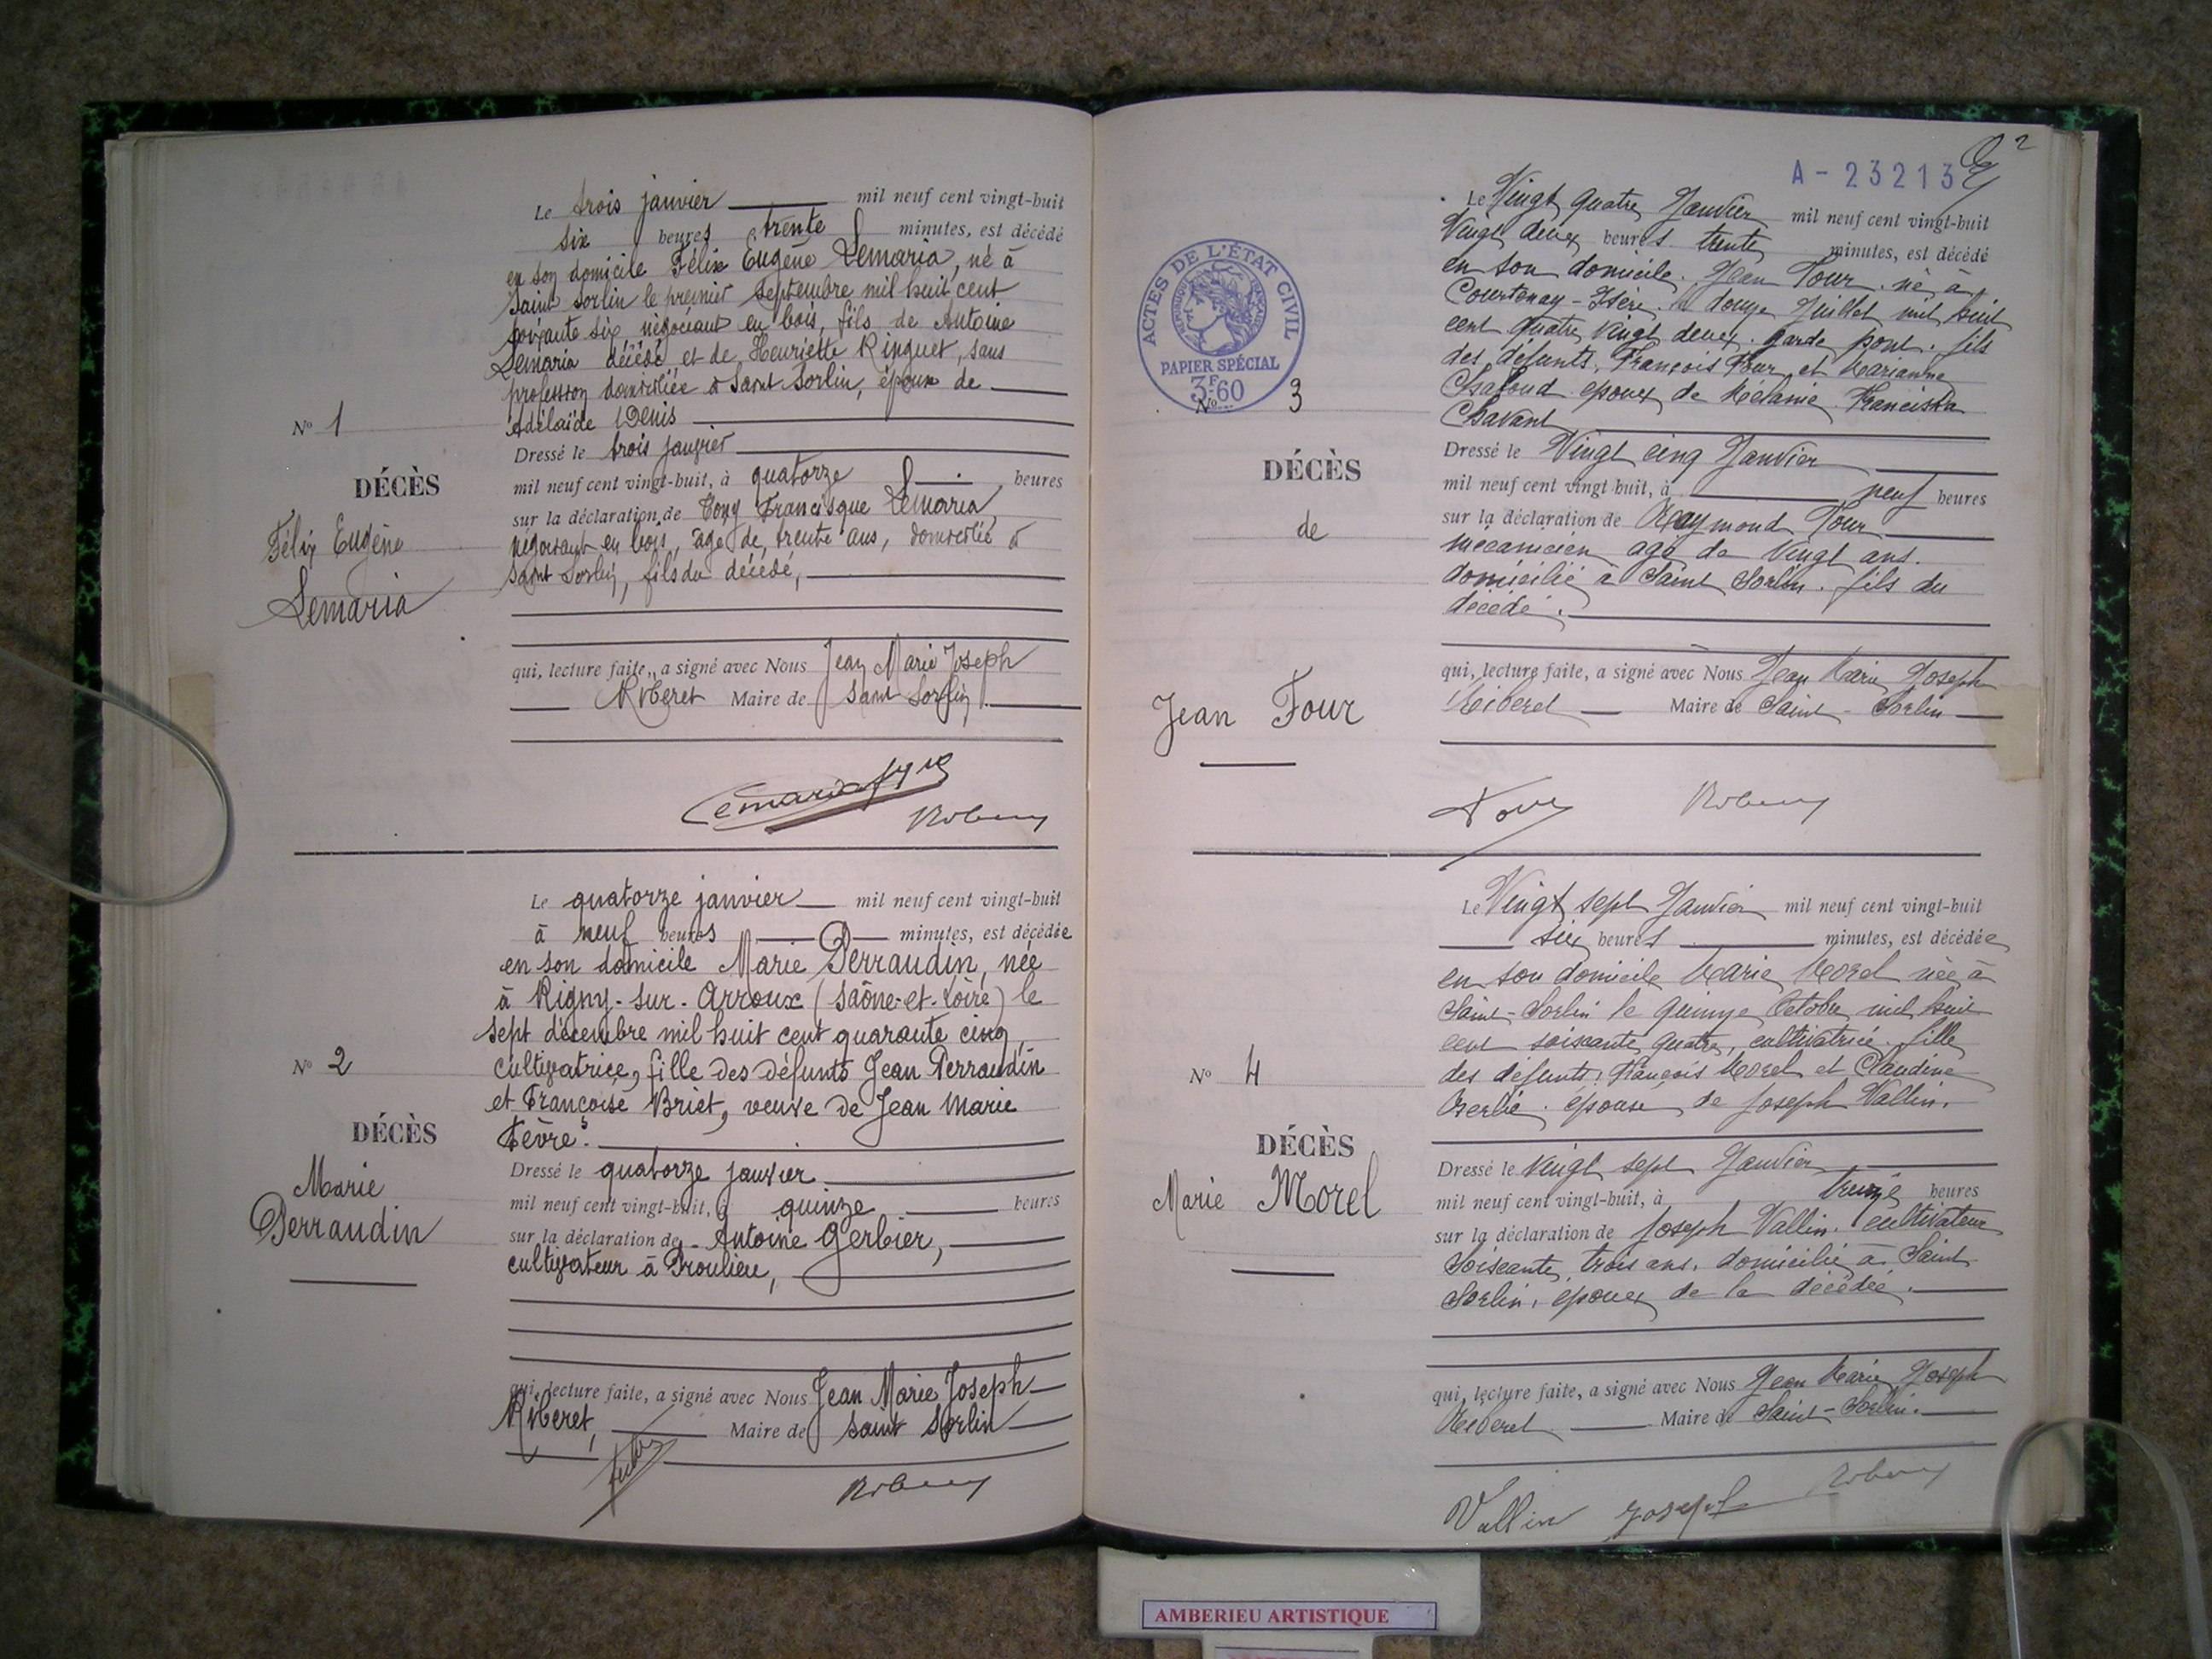 Le trois janvier mil neuf cent vingt-huit
six heures trente minutes, est décédé
en son domicile Félix Eugène Lemaria, né à
Saint Sorlin le premier Septembre mil huit cent
soixante six, négociant en bois, fils de Antoine
Lemaria décédé et de Henriette Ringuet, sans
profession domiciliée à Saint Sorlin, époux de
Adélaïde Denis
N° 1
Dressé le trois janvier
DÉCÈS
mil neuf cent vingt-huit, à quatorze heures
sur la déclaration de Tony Francisque Lemaria,
Félix Eugène
Lemaria
négociant en bois, âgé de trente ans, domicilié à
Saint Sorlin, fils du décédé,
qui, lecture faite, a signé avec Nous Jean Marie Joseph
Riberet Maire de Saint Sorlin.
Lemaria
Le quatorze janvier mil neuf cent vingt-huit
à neuf heures minutes, est décédée
en son domicile Marie Perraudin, née
à Rigny-sur-Arroux (Saône-et-Loire) le
sept décembre mil huit cent quarante cinq,
N° 2
cultivatrice, fille des défunts Jean Perraudin
et Françoise Briet, veuve de Jean Marie
DÉCÈS
Fèvre.
Marie
Perraudin
Dressé le quatorze janvier.
mil neuf cent vingt-huit, à quinze heures
sur la déclaration de Antoine Gerbier,
cultivateur à Proulieu,
qui, lecture faite, a signé avec Nous Jean Marie Joseph
Riberet, Maire de Saint Sorlin
2
A-23213
Le Vingt quatre Janvier mil neuf cent vingt-huit
Vingt deux heures trente minutes, est décédé
en son domicile. Jean Four. né à
Courtenay-Isère. le douze Juillet mil huit
cent quatre vingt deux. garde pont. fils
des défunts. François Four et Marianne
Chaloud. époux de Mélanie Franciska
Chavant
ACTES DE L'ÉTAT CIVIL
RÉPUBLIQUE FRANÇAISE
PAPIER SPÉCIAL
3F.60
N° 3
DÉCÈS
de
Jean Four
Dressé le Vingt cinq Janvier
mil neuf cent vingt-huit, à neuf heures
sur la déclaration de Raymond Four
mécanicien agé de Vingt ans.
domicilié à Saint Sorlin. fils du
décédé.
qui, lecture faite, a signé avec Nous Jean Marie Joseph
Riberet Maire de Saint-Sorlin
Four
Le Vingt sept Janvier mil neuf cent vingt-huit
six heures minutes, est décédée
en son domicile Marie Morel née à
Saint-Sorlin le quinze Octobre mil huit
cent soixante quatre, cultivatrice. fille
des défunts. François Morel et Claudine
épouse de Joseph Vallin.
N° 4
DÉCÈS
Marie Morel
Dressé le Vingt sept Janvier
mil neuf cent vingt-huit, à treize heures
sur la déclaration de Joseph Vallin. cultivateur
Soixante trois ans. domicilié à Saint
Sorlin, époux de la décédée.
qui, lecture faite, a signé avec Nous Jean Marie Joseph
Riberet Maire de Saint-Sorlin.
Vallin Joseph
AMBERIEU ARTISTIQUE